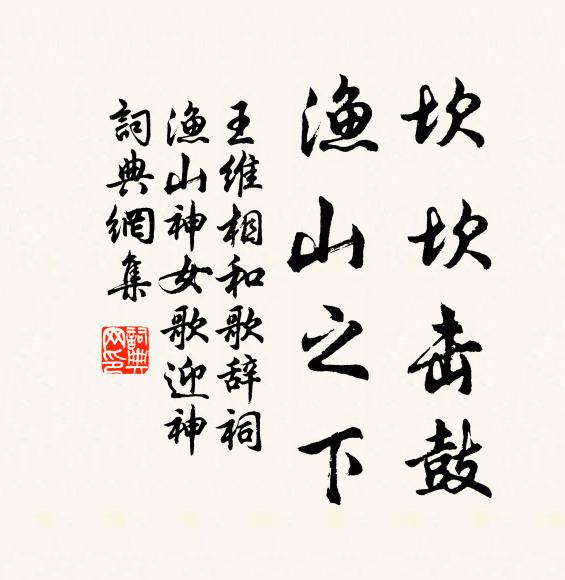 坎坎击鼓
渔山之下
王维相和歌辞祠
渔山神女歌迎神
詞典網集
詞典
网印